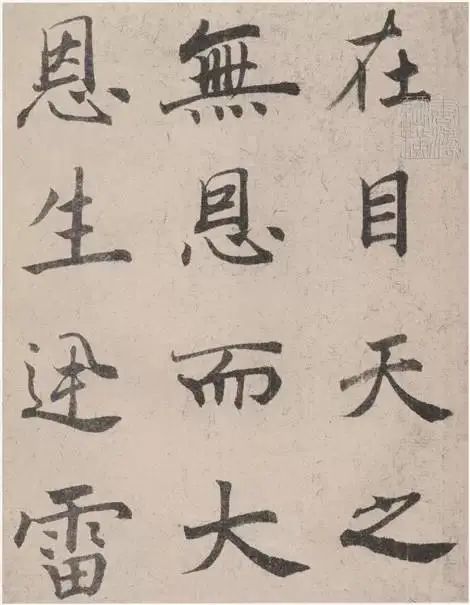 在目天之
無恩而大
恩生迅雷